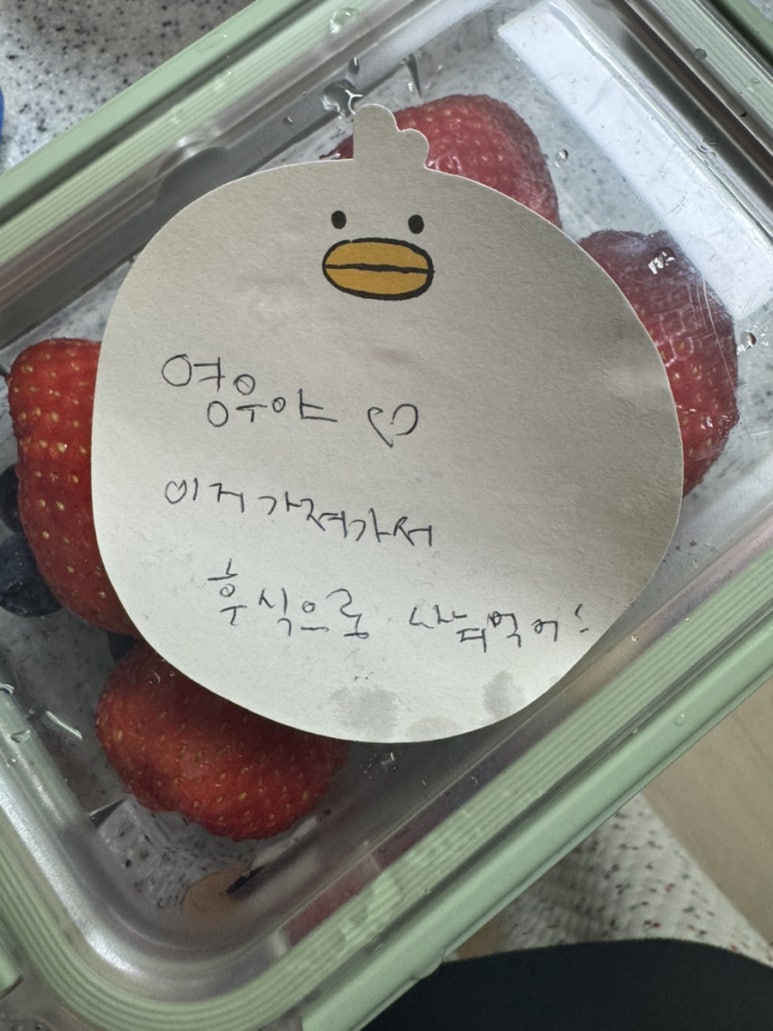 영우야 ♡
이거 가져가서
후식으로 먹어!